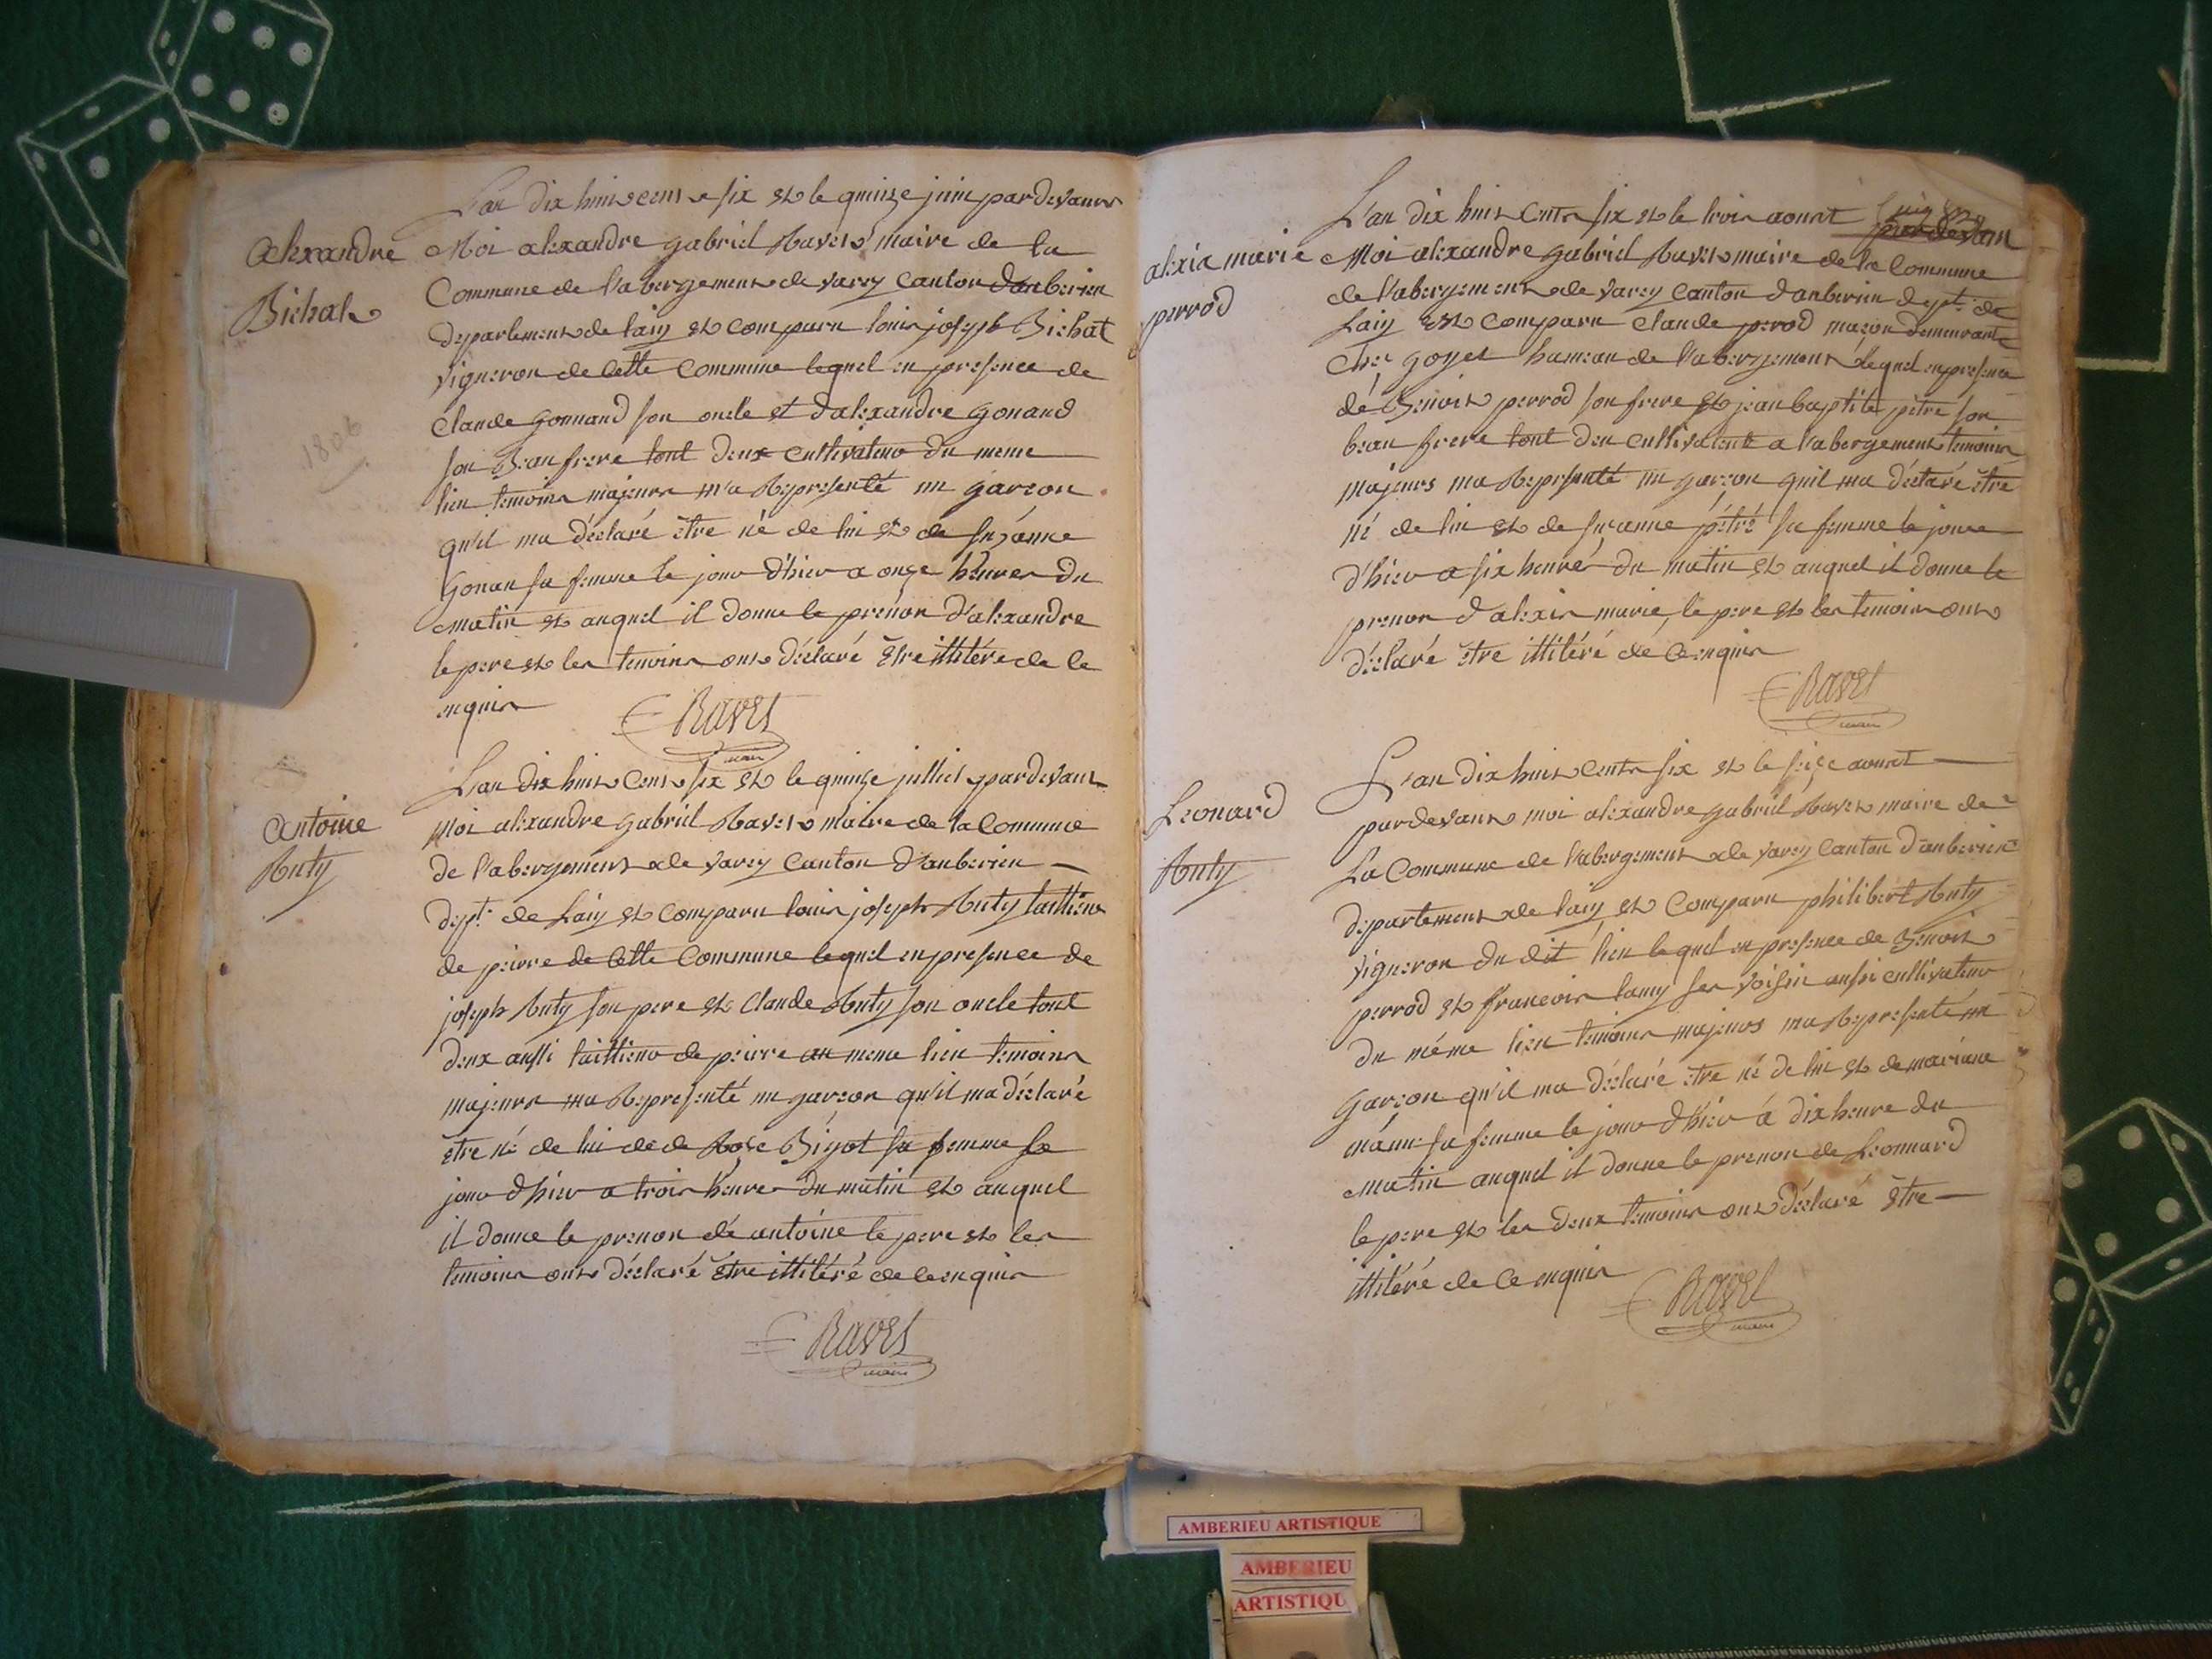 Alexandre
Bichat
1806
L'an dix huit cent six et le quinze juin pardevant
Moi alexandre gabriel Ravet maire de la
Commune de l'abergement de varey Canton d'anberieu
departement de lain et comparu louis joseph Bichat
vigneron de cette commune lequel en presence de
Claude gonnand son oncle et d'alexandre gonand
son Beau frere tout deux cultivateur du meme
lieu temoins majeurs m'a Represente un garcon
qu'il ma déclaré être né de lui et de suzanne
gonan sa femme le jour d'hier a onze heures du
matin et auquel il donne le prénon d'alexandre
le pere et les temoins ont déclaré être illitéré de ce
enquis
Ravet
maire
Antoine
Ruty
L'an dix huit cent six et le quinze jullet pardevant
Moi alexandre gabriel Ravet maire de la Commune
de l'abergement de varey Canton d'anberieu
dept. de Lain et comparu louis joseph Ruty taillieur
de peirre de cette Commune lequel en presence de
joseph Ruty son pere et Claude Ruty son oncle tout
deux aussi taillieur de peirre au meme lieu temoins
majeurs ma Representé un garcon qu'il ma déclaré
être né de lui de de Rose Bigot sa femme le
jour d'hier a trois heures du matin et auquel
il donne le prenon de antoine le pere et les
temoins ont déclaré être illitéré de ce enquis
Ravet
maire
alexis marie
perrod
L'an dix huit cents six et le trois aoust
pardevant
Moi alexandre gabriel Ravet maire de la Commune
de l'abergement de varey Canton d'anberieu dept. de
Lain est comparu Claude perod macon demeurant
chez goyet hameau de l'abergement lequel en presence
de Benoit perrod son frere et jean baptiste pétre son
beau frere tout deu cultivateur a l'abergement temoins
majeurs ma Representé un garcon quil ma déclaré être
né de lui et de suzanne pétré sa femme le jour
d'hier a six heures du matin et auquel il donne le
prenon d'alexis marie, le pere et les temoins ont
déclaré être illitéré de ce enquis
Ravet
maire
Leonard
Ruty
L'an dix huit cents six et le seize aoust
pardevant moi alexandre gabriel Ravet maire de
La Commune de l'abergement de varey Canton d'anberieu
departement de lain et Comparu philibert Ruty
vigneron du dit lieu lequel en presence de Benoit
perrod et francois lamy ses voisin aussi cultivateur
du méme lieu temoins majeurs ma Representé un
garcon qu'il ma déclaré être né de lui et de mariane
sa femme le jour d'hier à dix heure du
matin auquel il donne le prenon de Leonnard
le pere et les deux temoins ont déclaré être
illitéré de ce enquis
Ravet
maire
AMBERIEU ARTISTIQUE
AMBERIEU
ARTISTIQU